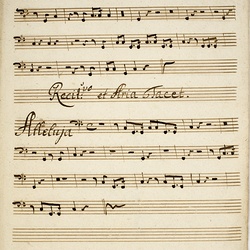 Recit:vo et Aria Tacet.
Alleluja